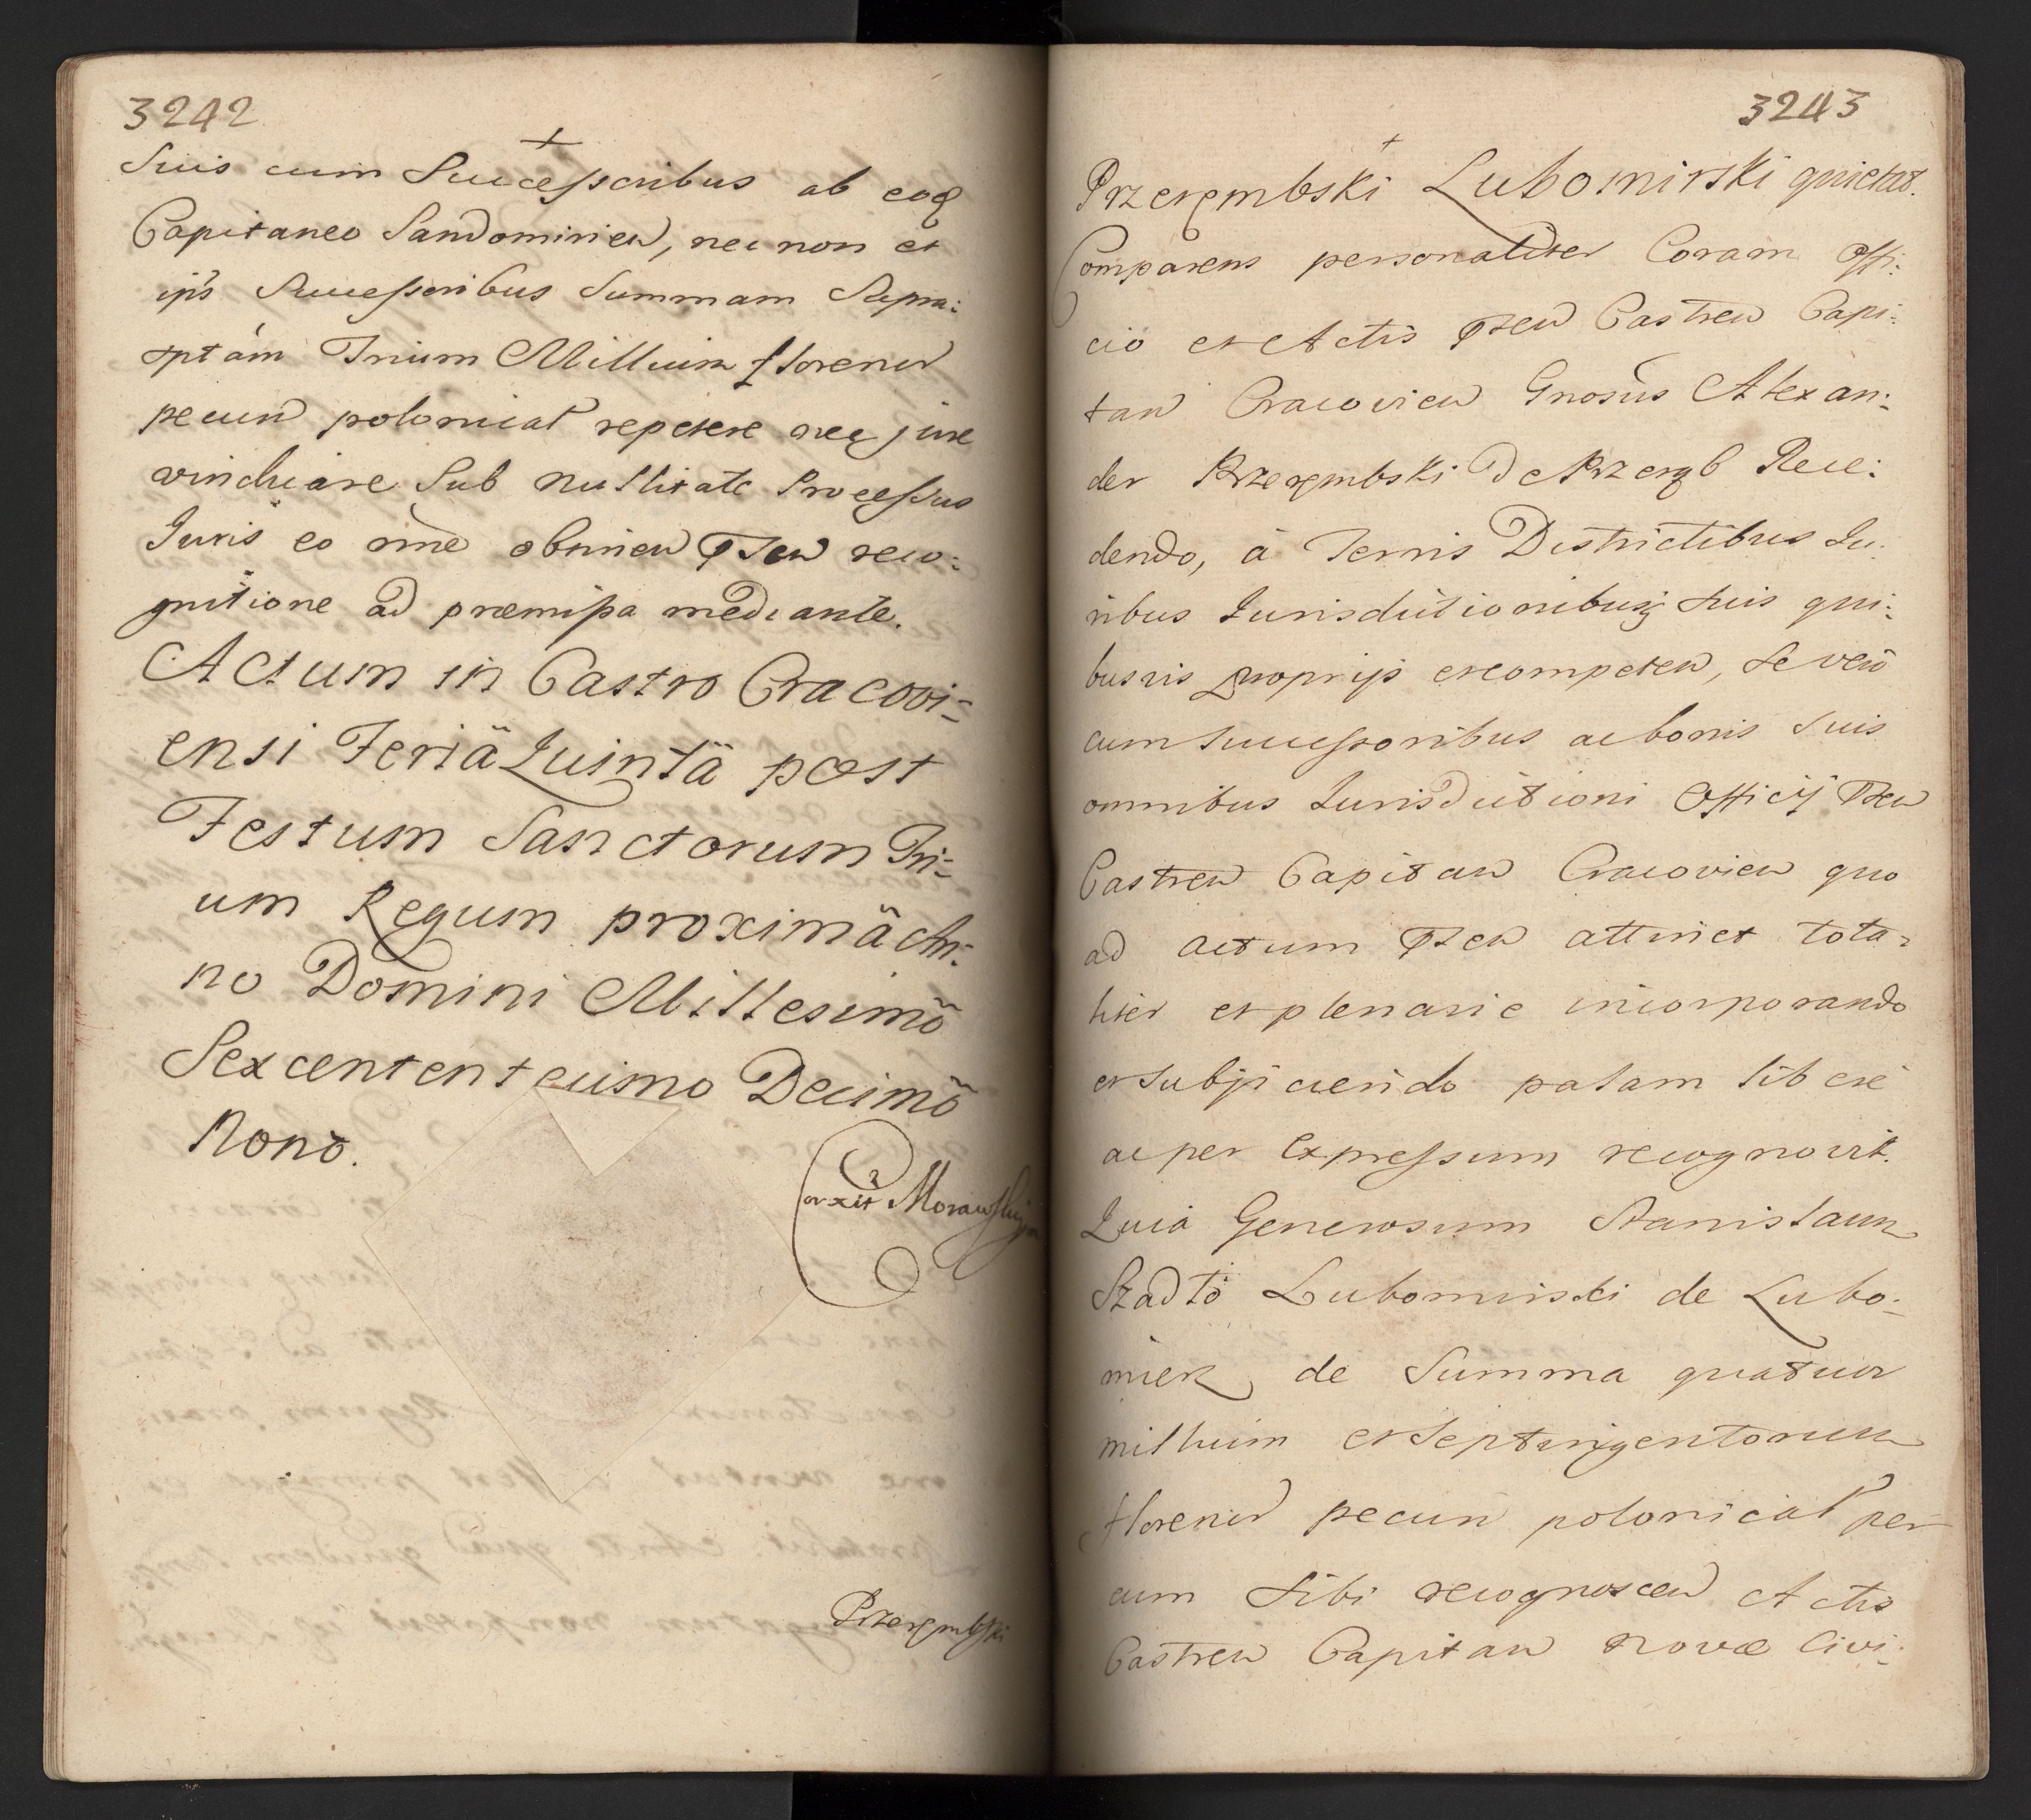 3242
+
Suis cum Successoribus ab eoq
Capitaneo Sandomirien, nec non et
ipis Successoribus Summam Supra:
sptam Trium Millium florenor
pecun polonical repetere nec jure
vindicare Sub nullitate Processus
Juris eo nne obtinen Pnsen reco:
gnitione ad præmissa mediante.
Actum in Castro Cracovi=
ensi Feriä Quintä post
Festum Sanctorum Tri=
um Regum proximä An:
no Domini Millesimõ
Sexcentent esimo Decimõ
Nonõ.
Corxit Morawski
Przerembski
3243
+
Przerembski Lubomirski quietat.
Comparens personaliter Coram Offi:
cio et Actis Pnsen Castren Capi:
tan Cracovien Gnosus Alexan:
der Przerembski de Przeręb Rece:
dendo, à Terris Districtibus Ju:
ribus Jurisdictionibusq suis qui:
busvis proprijs et competen, Se vero
cum Successoribus ac bonis Suis
omnibus Jurisdictioni Officij Pnsen
Castren Capitan Cracovien quo
ad actum Pnsen attinet tota:
liter et plenarie incorporando
et Subjiciendo palam liberè
ac per Expressum recognovit.
Quia Generosum Stanislaum
Szadło Lubomirski de Lubo:
mierz de Summa quatuor
millium et Septingentorum
florenor pecun polonical per
eum Sibi recognoscen Actis
Castren Capitan Novæ Civi: